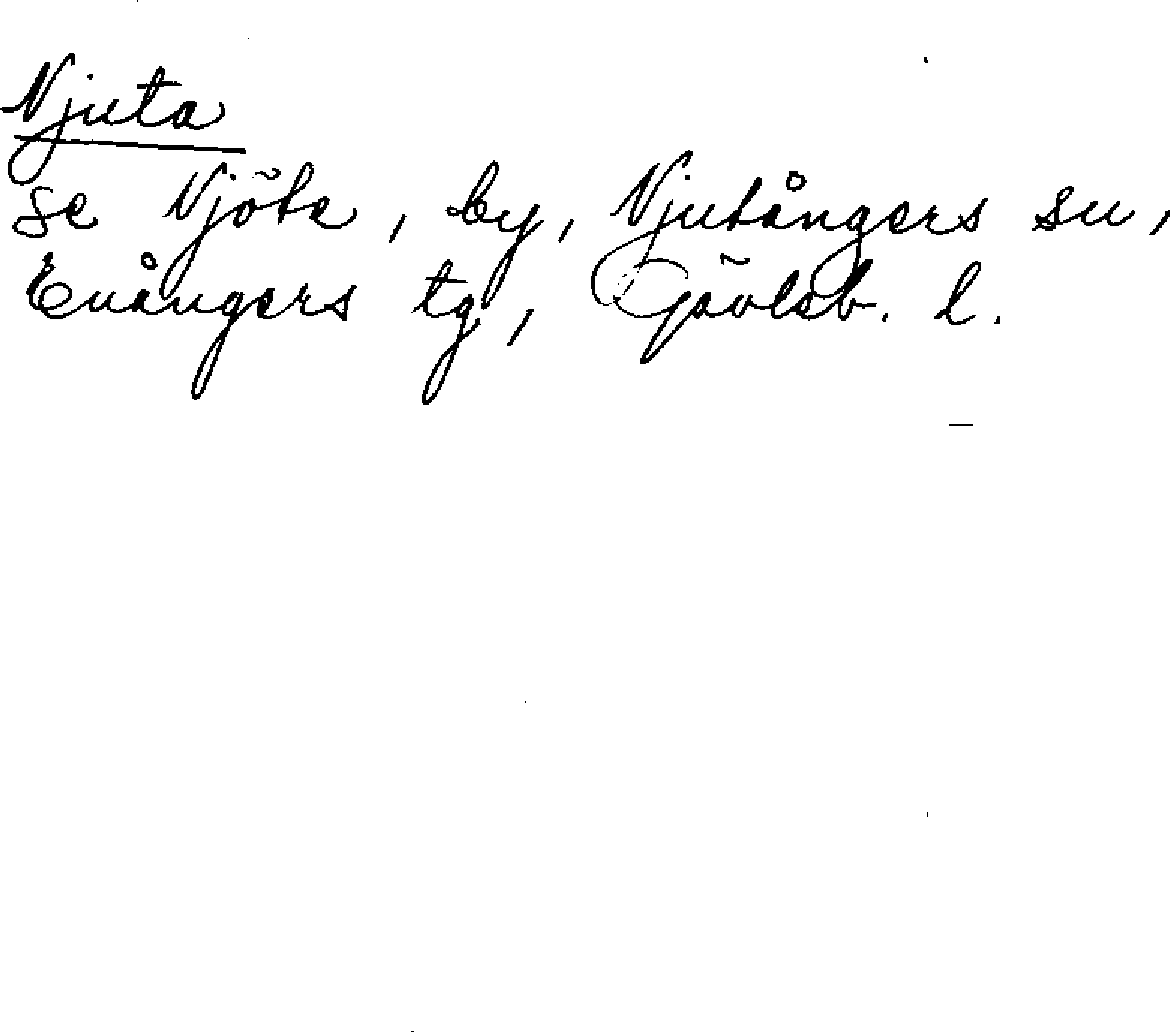 Njuta
se Njöta, by, Njutångers sn,
Enångers tg, Gävleb. l.